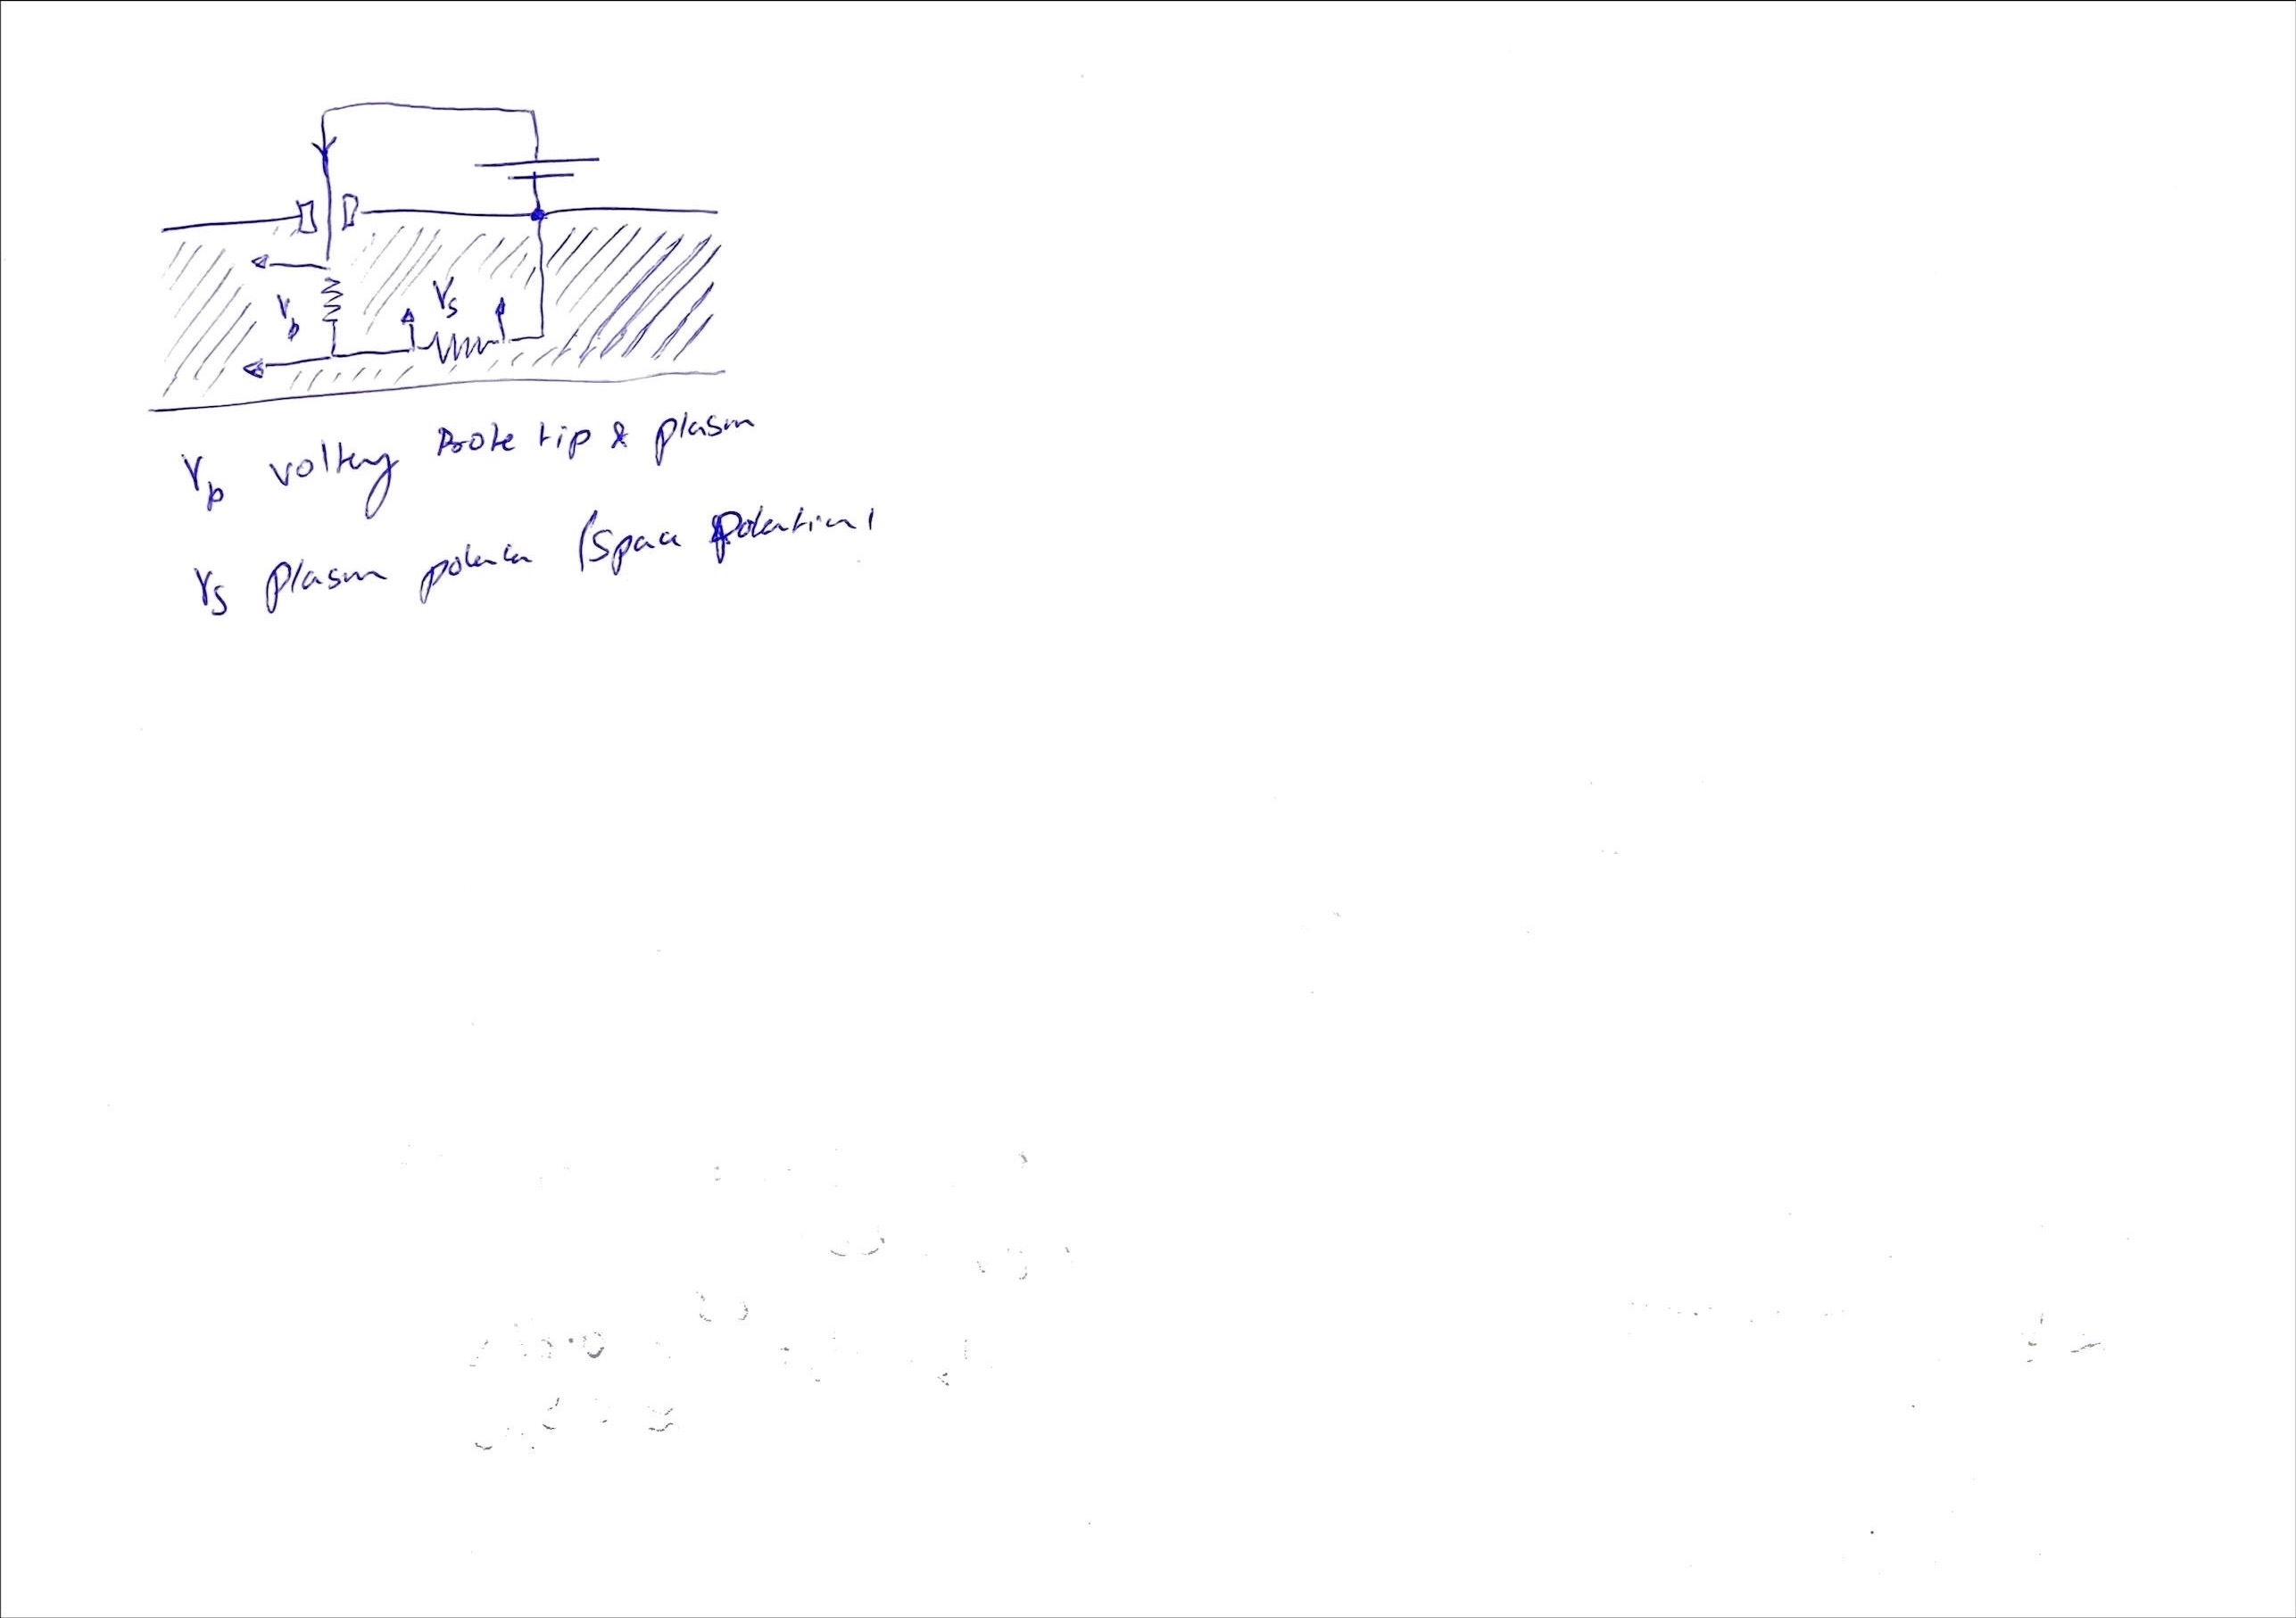 Vs
Vp
Vp voltag Probe tip & plasm
Vs plasm potentia (Space potential